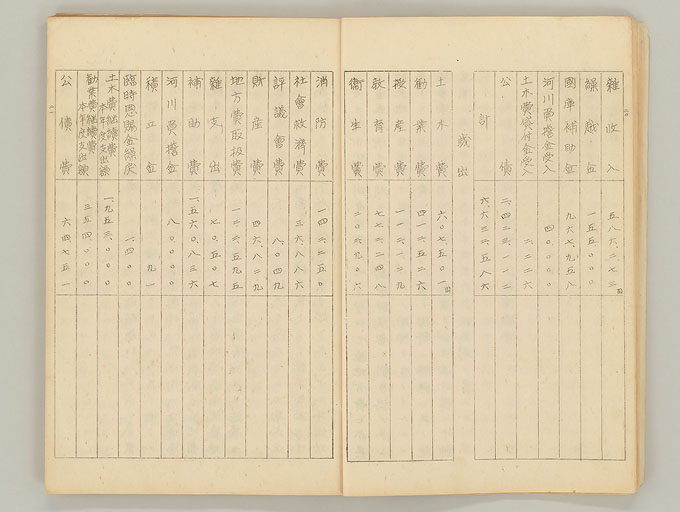 雜收入 五八六、二七三圓
繰越金 一五五、〇〇〇
國庫補助金 九六七、九五八
河川費擔金受入 四〇、〇〇〇
土木費付金受入
公債 二、四二三、一一二
計 六、六三二、五八六
歳出
土木費 六〇七、五〇一圓
勸業費 四一六、五二六
産費
教育費 七七三、二四八
衞生費
消防費 一四二、二五〇
社會救濟費 三六、八八六
評議會費 八、〇四九
財産費 四六、八二九
地方費取扱費 一二三、五九五
雜支出 七〇、五〇七
補助費 一、五六〇、八三六
河川費擔金 八〇、〇〇〇
積立金 九一
臨時恩賜金繰戻 一、四〇〇
土木費繼續費
本年度支出額 一、九五三、〇〇〇
勸業費繼續費
本年度支出額 三五四、〇〇〇
公債費 六四七、五一一